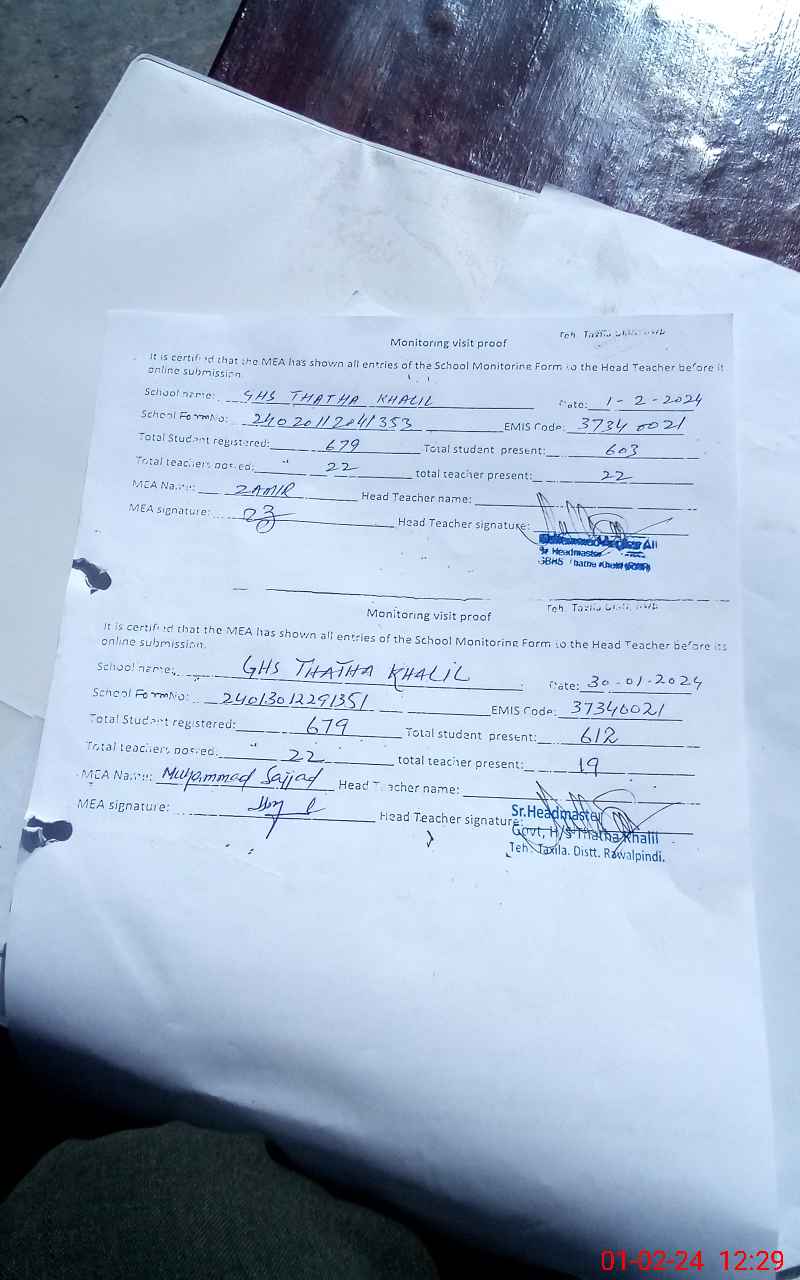 Monitoring visit proof
Teh. Taxila
It is certified that the MEA has shown all entries of the School Monitoring Form to the Head Teacher before it
online submission.
School name: GHS THATHA KHALIL Date: 1-2-2024
School Form No: 24020112041353 EMIS Code: 37340021
Total Student registered: 679 Total student present: 603
Total teachers posted: 22 total teacher present: 22
MEA Name: ZAMIR Head Teacher name:
MEA signature: Head Teacher signature:
Ali
Sr Headmaster
GBHS Thatha Khalil (RWP)
Monitoring visit proof
Teh. Taxila
It is certified that the MEA has shown all entries of the School Monitoring Form to the Head Teacher before its
online submission.
School name: GHS THATHA KHALIL Date: 30-01-2024
School Form No: 24013012291351 EMIS Code: 37340021
Total Student registered: 679 Total student present: 612
Total teachers posted: 22 total teacher present: 19
MEA Name: Muhammad Sajjad Head Teacher name:
MEA signature: Head Teacher signature:
Sr.Headmaster
Govt, H/S Thatha Khalil
Teh. Taxila. Distt. Rawalpindi.
01-02-24 12:29